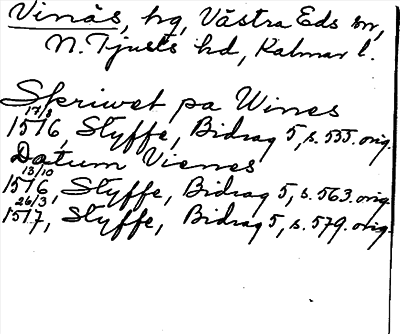 Vinäs, hg, Västra Eds sn,
N. Tjusts hd, Kalmar l.
Skriwet pa Wines
17/8 1516, Styffe, Bidrag 5, s. 535. orig.
Datum Vienes
13/10 1516, Styffe, Bidrag 5, s. 563. orig.
26/3 1517, Styffe, Bidrag 5, s. 579. orig.